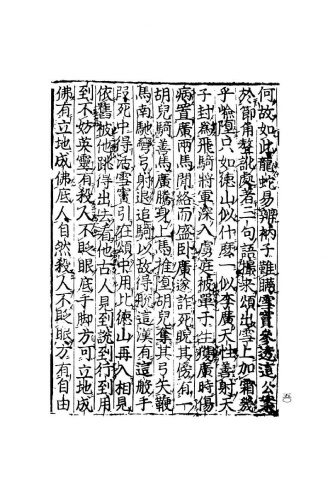 何故如此龍蛇易辨衲子難瞞雪竇參透這公案
於節角聱訛處著三句語撮來頌出雪上加霜幾
乎嶮墮只如德山似什麼一似李廣天性善射天
子封為飛騎將軍深入虜庭被單于生獲廣時傷
病置廣兩馬間絡而盛臥廣遂詐死睨其傍有一
胡兒騎善馬廣騰身上馬推墮胡兒奪其弓矢鞭
馬南馳彎弓射退追騎以故得脫這漢有這般手
段死中得活雪竇引在頌中用比德山再入相見
依舊被他跳得出去看他古人見到說到行到用
到不妨英靈有殺人不眨眼底手脚方可立地成
佛有立地成佛底人自然殺人不眨眼方有自由